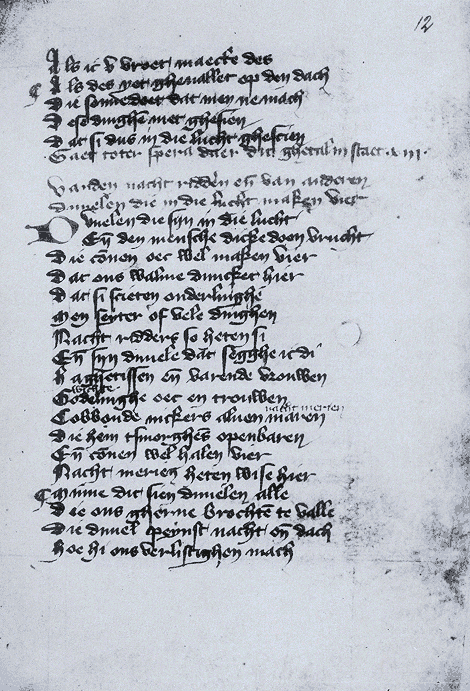 12
Als ic v vroet maecte des
Als des yet gheuallet op den dach
Die sonne doet dat men ne mach
Dese dinghe niet ghesien
Dat si dus in die lucht ghescien
Gaet toter spera daer dit ghetal in staet
Vanden nacht ridders en̄ van anderen
duuelen die in die lucht maken vier
Duuelen die sijn in die lucht
En̄ den mensche dicke doen vrucht
Die cōnen oec wel maken vier
Dat ons walme duncket hier
Dat si scieten onderlinghe
Men seyter of vele dinghen
Nacht ridders so heten si
En̄ sijn duuele dat segghe ic di
Haghetissen en̄ varende vrouwen
wichte
Godelinghe oec en trouwen
nacht merien
Cobbonde nickers aluen maren
Die hem tsmorghēs openbaren
En̄ cōnen wel halen vier
Nacht merien heten wise hier
Minne dit sien duuelen alle
Die ons gherne brochtē te valle
Die duuel peynst nacht en̄ dach
Hoe hi ons verlistighen mach